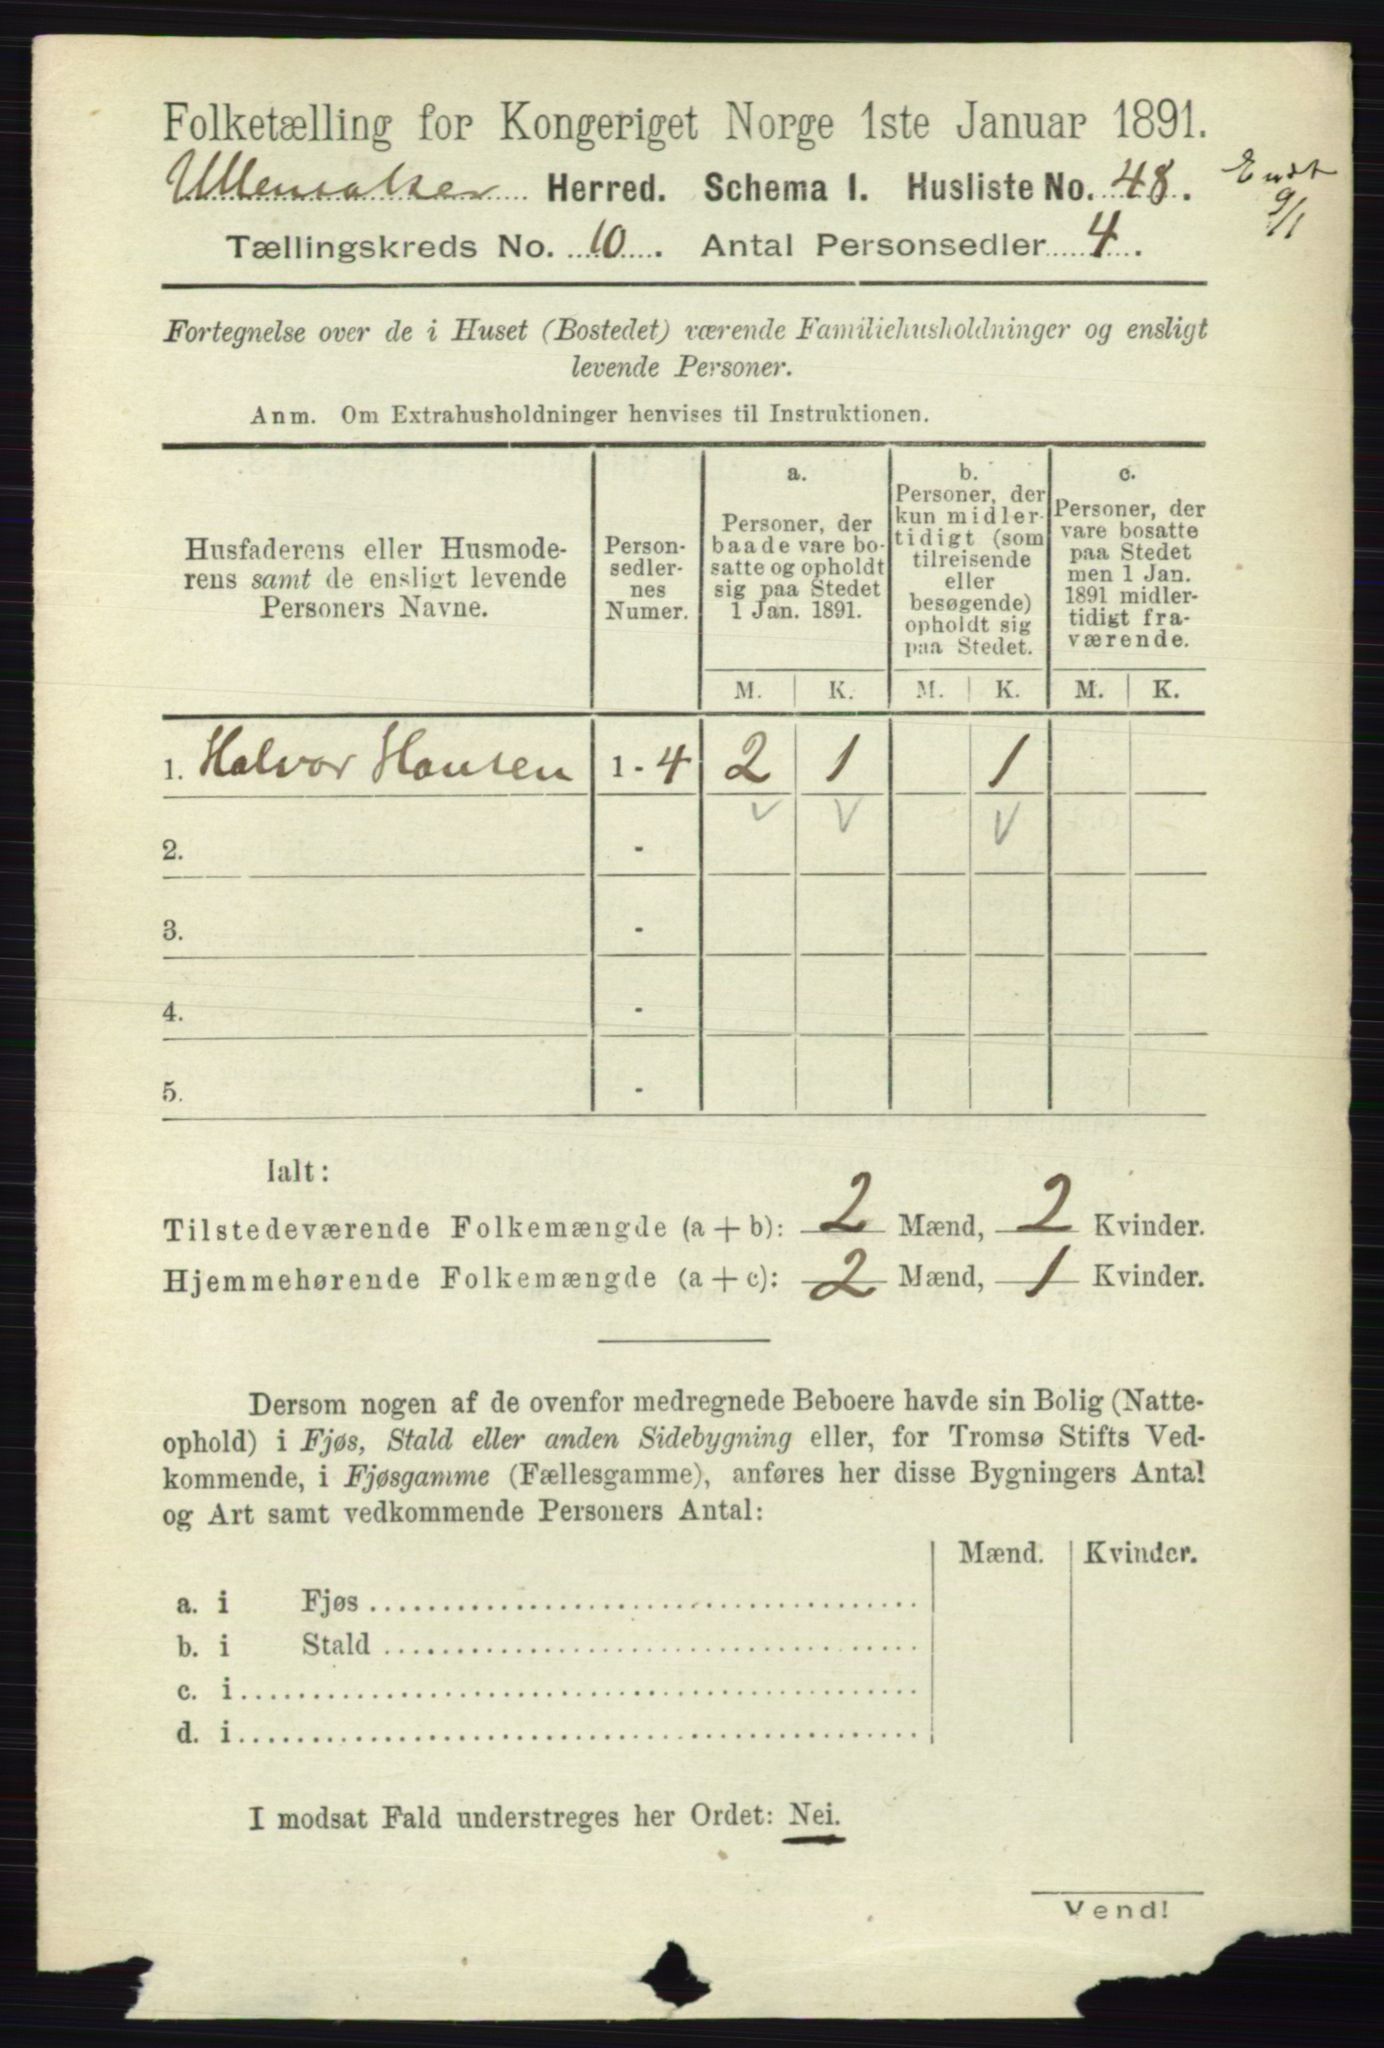 Folketælling for Kongeriget Norge 1ste Januar 1891.
Ullensaker Herred. Schema 1. Husliste No. 48.
9/1
Tællingskreds No. 10. Antal Personsedler 4.
Fortegnelse over de i Huset (Bostedet) værende Familiehusholdninger og ensligt
levende Personer.
Anm. Om Extrahusholdninger henvises til Instruktionen.
Husfaderens eller Husmode-
rens samt de ensligt levende
Personers Navne.
Person-
sedler-
nes
Numer.
a.
Personer, der
baade vare bo-
satte og opholdt
sig paa Stedet
1 Jan. 1891.
b.
Personer, der
kun midler-
tidigt (som
tilreisende
eller
besøgende)
opholdt sig
paa Stedet.
c.
Personer, der
vare bosatte
paa Stedet
men 1 Jan.
1891 midler-
tidigt fra-
værende.
M. K. M. K. M. K.
1. Halvor Hansen 1 - 4 2 1 1
2. -
3. -
4. -
5. -
Ialt:
Tilstedeværende Folkemængde (a + b): 2 Mænd, 2 Kvinder.
Hjemmehørende Folkemængde (a + c): 2 Mænd, 1 Kvinder.
Dersom nogen af de ovenfor medregnede Beboere havde sin Bolig (Natte-
ophold) i Fjøs, Stald eller anden Sidebygning eller, for Tromsø Stifts Ved-
kommende, i Fjøsgamme (Fællesgamme), anføres her disse Bygningers Antal
og Art samt vedkommende Personers Antal:
Mænd. Kvinder.
a. i Fjøs
b. i Stald
c. i
d. i
I modsat Fald understreges her Ordet: Nei.
Vend!